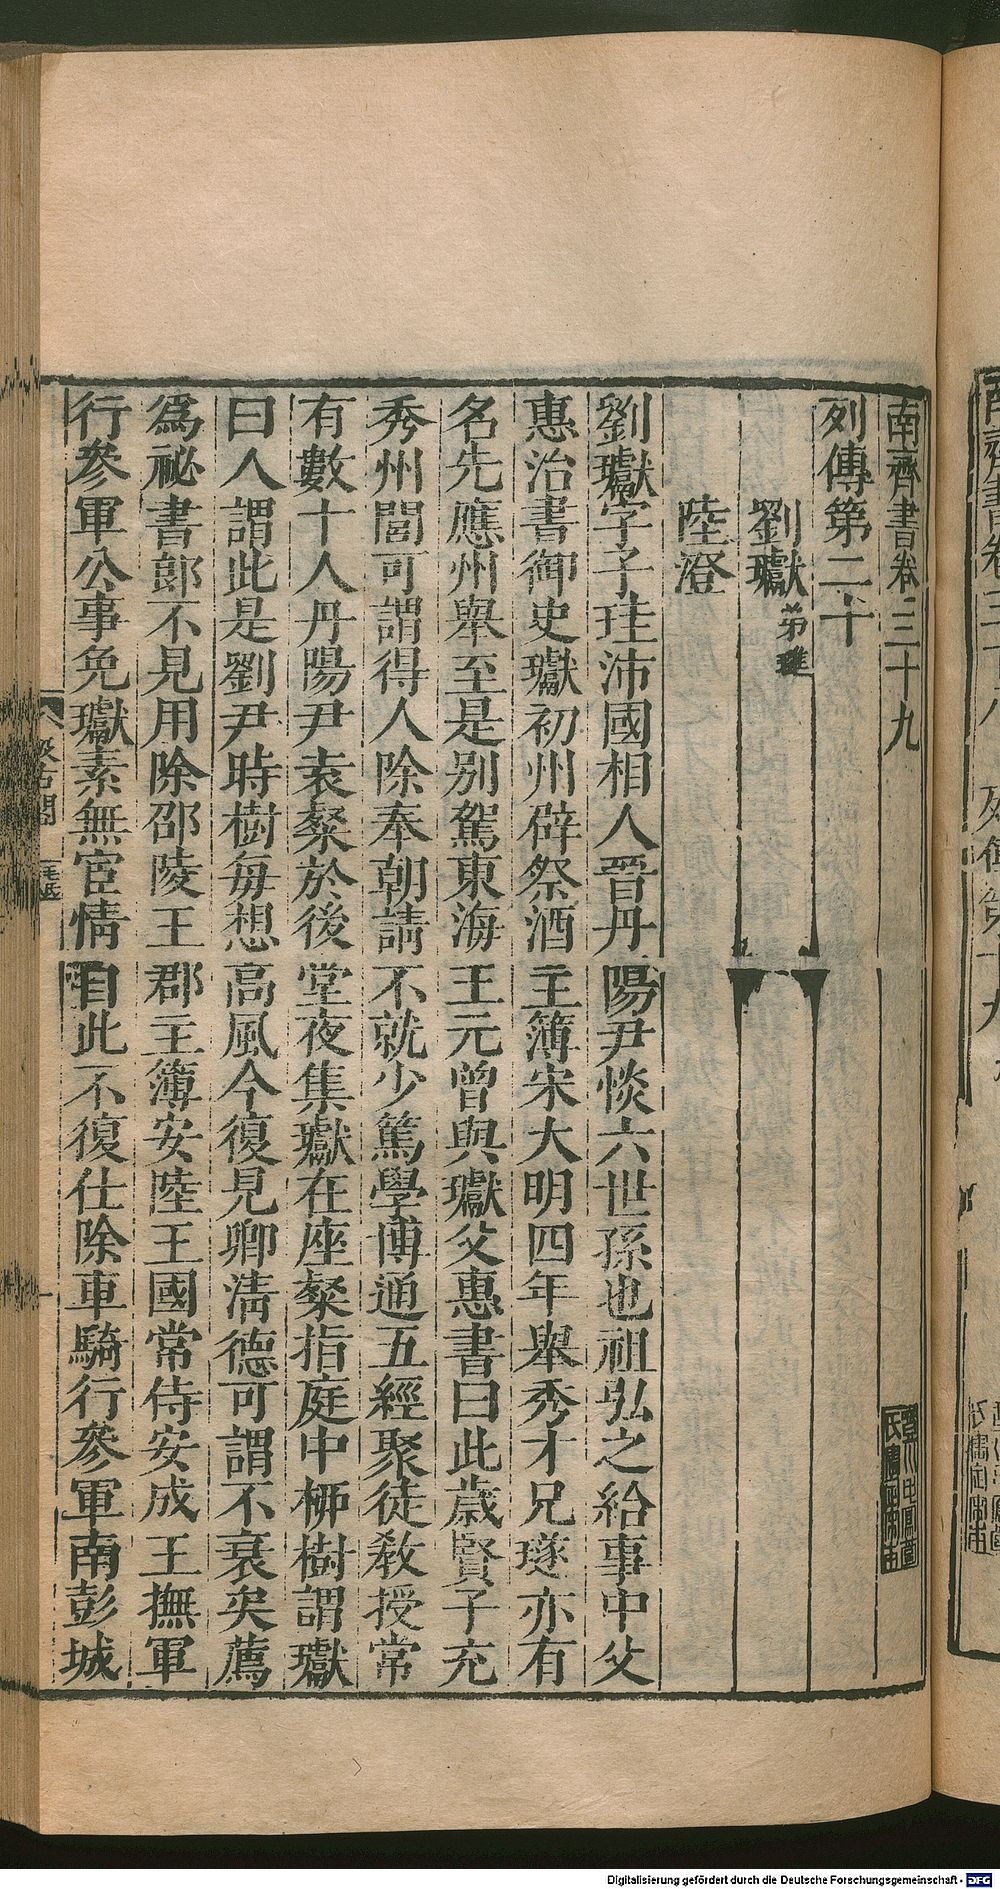 南齊書卷三十九
列傳第二十
劉瓛 弟璡
陸澄
劉瓛字子珪沛國相人晉丹陽尹惔六世孫也祖弘之給事中父
惠治書御史瓛初州辟祭酒主簿宋大明四年舉秀才兄璲亦有
名先應州舉至是別駕東海王元曾與瓛父惠書曰此歲賢子充
秀州閭可謂得人除奉朝請不就少篤學博通五經聚徒敎授常
有數十人丹陽尹袁粲於後堂夜集瓛在座粲指庭中柳樹謂瓛
曰人謂此是劉尹時樹每想高風今復見卿淸德可謂不衰矣薦
爲祕書郞不見用除邵陵王郡主簿安陸王國常侍安成王撫軍
行參軍公事免瓛素無宦情自此不復仕除車騎行參軍南彭城
Digitalisierung gefördert durch die Deutsche Forschungsgemeinschaft - DFG